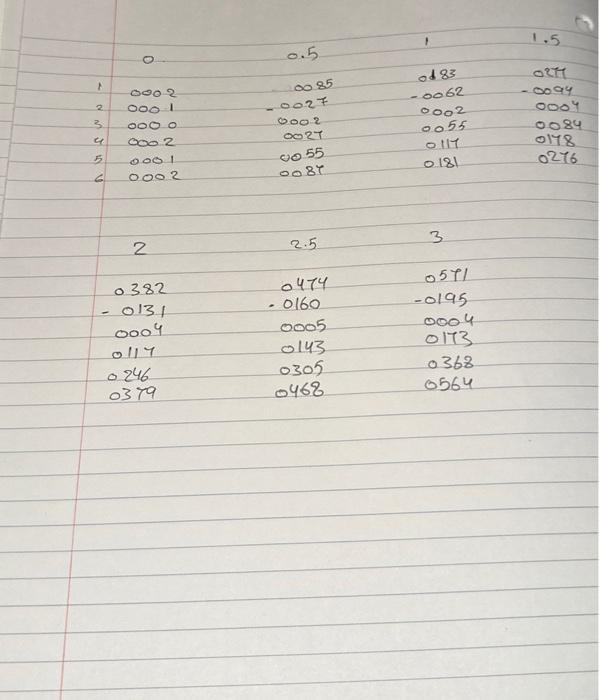 0 0.5 1 1.5
1 0002 0085 0183 0277
2 0001 -0027 -0062 -0094
3 0000 0002 0002 0004
4 0002 0027 0055 0084
5 0001 0055 0117 0178
6 0002 0087 0181 0276
2 2.5 3
0382 0474 0571
-0131 -0160 -0195
0004 0005 0004
0117 0143 0173
0246 0305 0368
0379 0468 0564